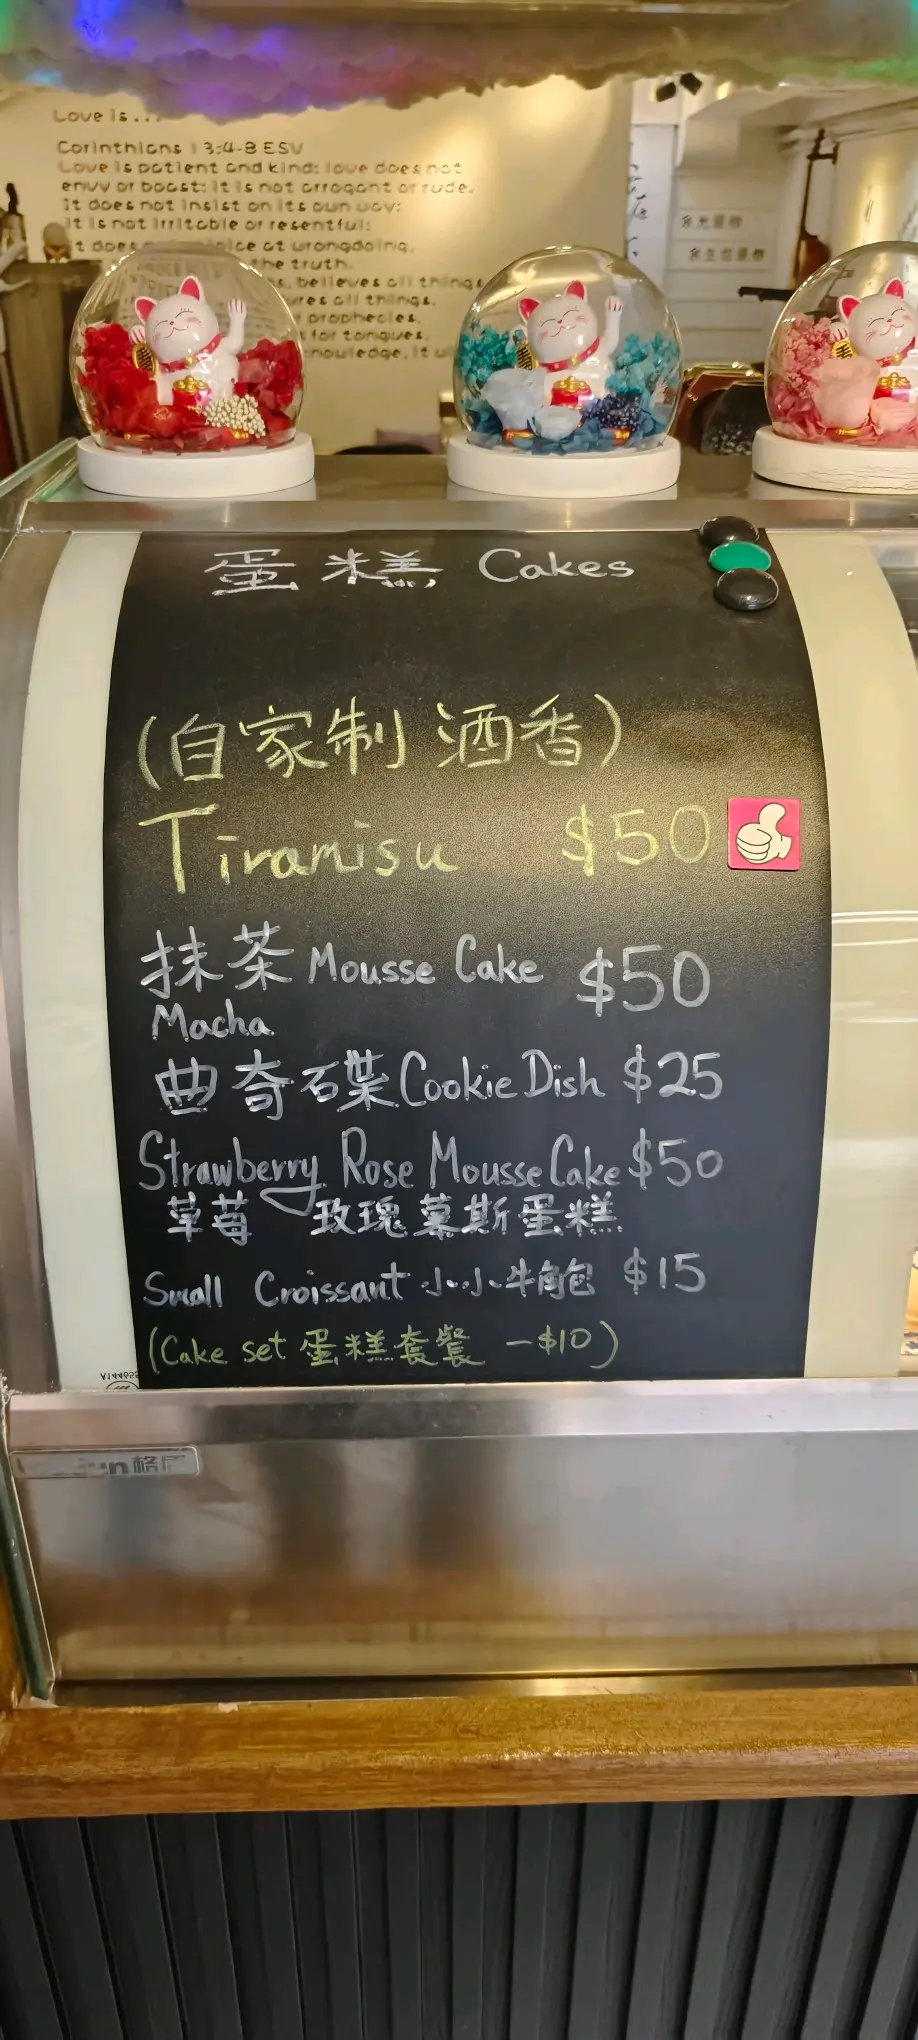 Love is...
Corinthians 13:4-8 ESV
Love is patient and kind; love does not
envy or boast; it is not arrogant or rude.
It does not insist on its own way;
it is not irritable or resentful;
it does at wrongdoing,
the truth.
believes all things
all things.
prophecies,
for tongues,
knowledge, it
蛋糕 Cakes
(自家制 酒香)
Tiramisu $50
抹茶 Mousse Cake $50
Macha
曲奇碟 Cookie Dish $25
Strawberry Rose Mousse Cake $50
草莓 玫瑰慕斯蛋糕
Small Croissant 小小牛角包 $15
(Cake set 蛋糕套餐 -$10)